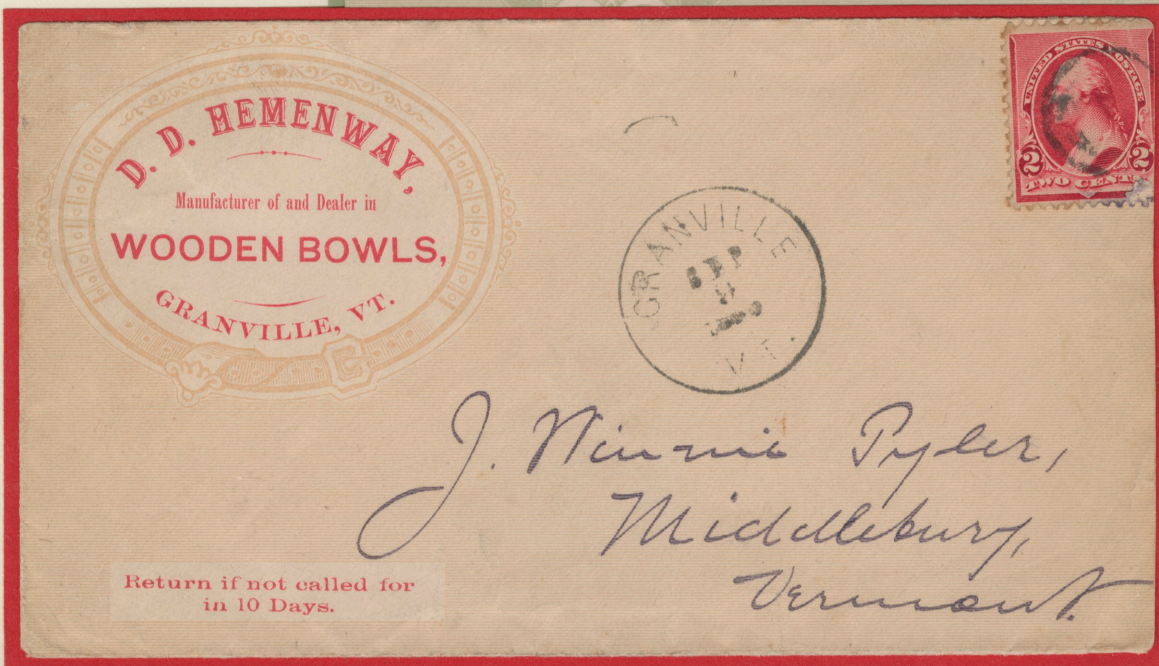 D. D. HEMENWAY,
Manufacturer of and Dealer in
WOODEN BOWLS,
GRANVILLE, VT.
UNITED STATES POSTAGE
2 2
TWO CENTS
GRANVILLE
SEP
9
VT.
J. Winnie Pyler,
Middlebury,
Vermont.
Return if not called for
in 10 Days.